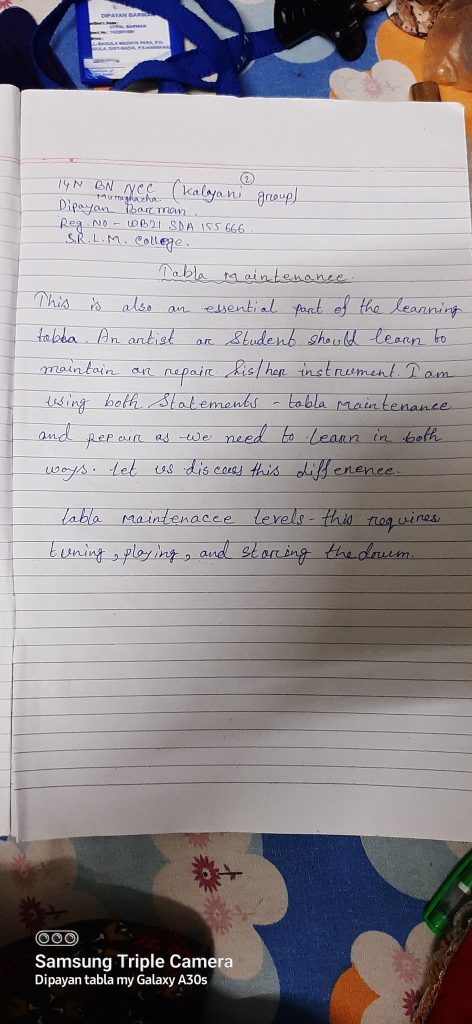 DIPAYAN BARMAN
UTPAL BARMAN
②
14N BN NCC (Kalyani group)
Muragachha
Dipayan Barman.
Reg NO - WB21 SDA 155666.
S.R.L.M. College.
Tabla Maintenance.
This is also an essential part of the learning
tabba. An artist are Student should learn to
maintain an repair his/her instrument. I am
using both Statements - tabla Maintenance
and Repair as we need to learn in both
ways. let us discues this difference.
tabla Maintenacce levels - this requires
tuning, playing, and storing the drum.
Samsung Triple Camera
Dipayan tabla my Galaxy A30s